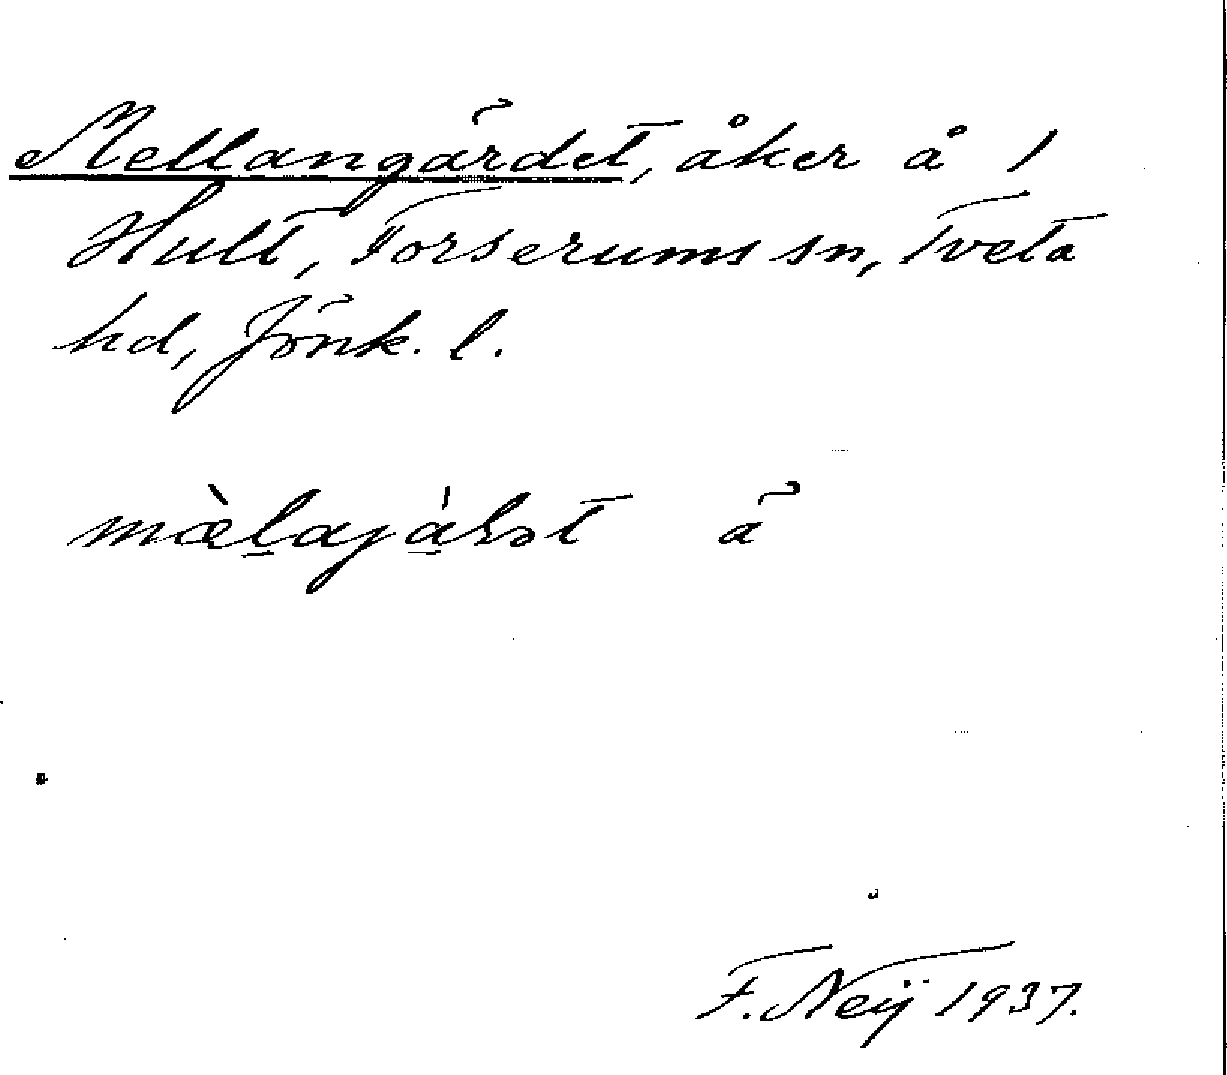 Mellangärdet, åker å 1
Hult, Forserums sn, Tveta
hd, Jönk. l.
ä
F. Neij 1937.